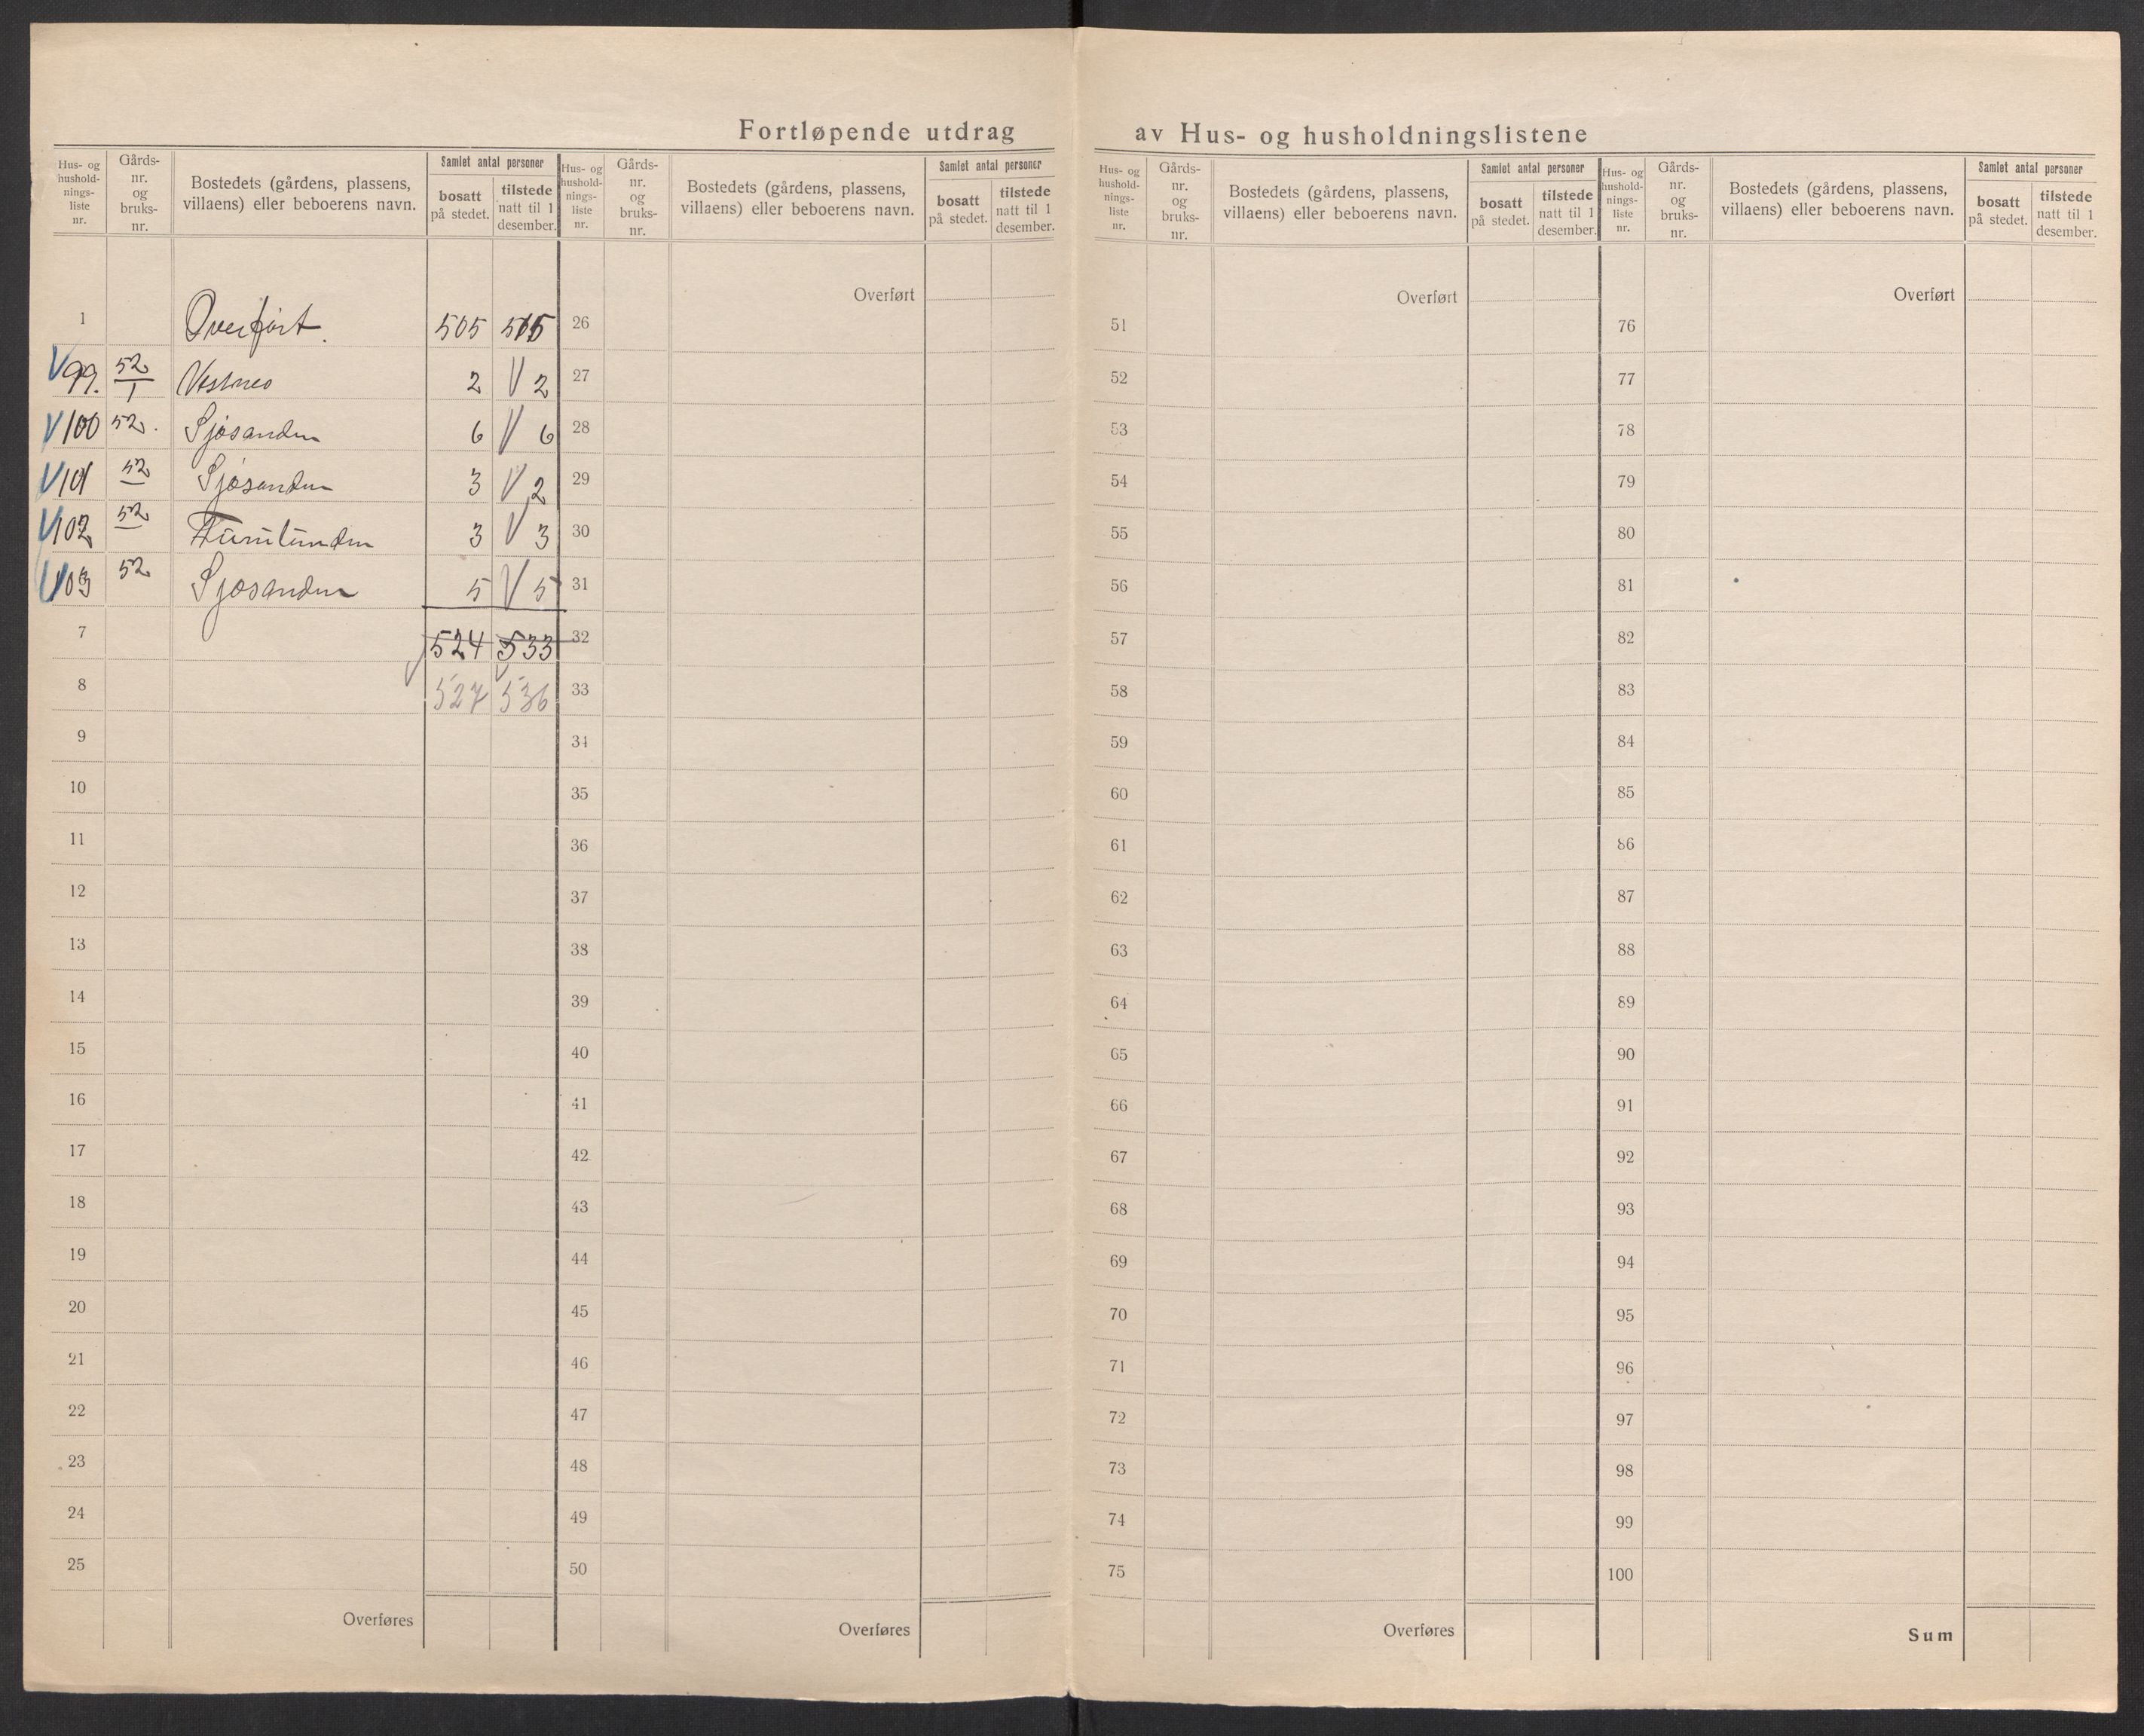 Fortløpende utdrag av Hus- og husholdningslistene
Hus- og hushold-nings-liste nr. Gårds-nr. og bruks-nr. Bostedets (gårdens, plassens, villaens) eller beboerens navn. Samlet antal personer bosatt på stedet. tilstede natt til 1 desember.
Overført
1 Overført. 505
V 99. 52/1 2 V 2
V 100 52. Sjøsanden 6 V 6
V 101 52 Sjøsanden 3 V 2
V 102 52 Furulunden 3 V 3
V 103 52 Sjøsanden 5 V 5
7 524 533
8 527 536
9
10
11
12
13
14
15
16
17
18
19
20
21
22
23
24
25
Overføres
Hus- og hushold-nings-liste nr. Gårds-nr. og bruks-nr. Bostedets (gårdens, plassens, villaens) eller beboerens navn. Samlet antal personer bosatt på stedet. tilstede natt til 1 desember.
Overført
26
27
28
29
30
31
32
33
34
35
36
37
38
39
40
41
42
43
44
45
46
47
48
49
50
Overføres
Hus- og hushold-nings-liste nr. Gårds-nr. og bruks-nr. Bostedets (gårdens, plassens, villaens) eller beboerens navn. Samlet antal personer bosatt på stedet. tilstede natt til 1 desember.
Overført
51
52
53
54
55
56
57
58
59
60
61
62
63
64
65
66
67
68
69
70
71
72
73
74
75
Overføres
Hus- og hushold-nings-liste nr. Gårds-nr. og bruks-nr. Bostedets (gårdens, plassens, villaens) eller beboerens navn. Samlet antal personer bosatt på stedet. tilstede natt til 1 desember.
Overført
76
77
78
79
80
81
82
83
84
85
86
87
88
89
90
91
92
93
94
95
96
97
98
99
100
Sum